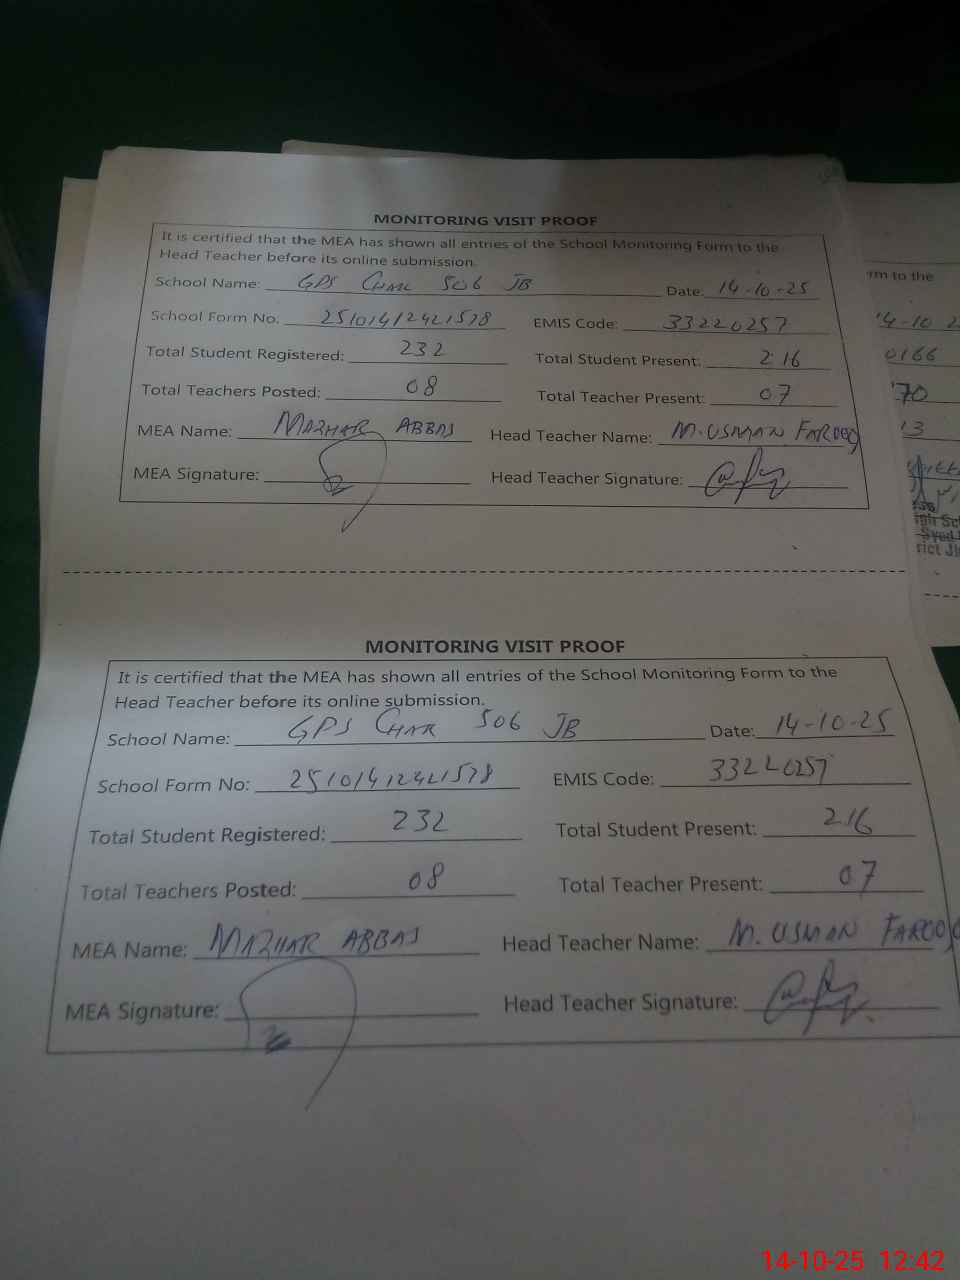 MONITORING VISIT PROOF
It is certified that the MEA has shown all entries of the School Monitoring Form to the
Head Teacher before its online submission.
School Name: GPS CHAK 506 JB Date: 14-10-25
School Form No: 25101412421578 EMIS Code: 33220257
Total Student Registered: 232 Total Student Present: 216
Total Teachers Posted: 08 Total Teacher Present: 07
MEA Name: MAZHAR ABBAS Head Teacher Name: M. USMAN FAROOQ
MEA Signature: Head Teacher Signature:
MONITORING VISIT PROOF
It is certified that the MEA has shown all entries of the School Monitoring Form to the
Head Teacher before its online submission.
School Name: GPS CHAK 506 JB Date: 14-10-25
School Form No: 25101412421578 EMIS Code: 33220257
Total Student Registered: 232 Total Student Present: 216
Total Teachers Posted: 08 Total Teacher Present: 07
MEA Name: MAZHAR ABBAS Head Teacher Name: M. USMAN FAROOQ
MEA Signature: Head Teacher Signature:
rm to the
14-10
0166
70
13
14-10-25 12:42